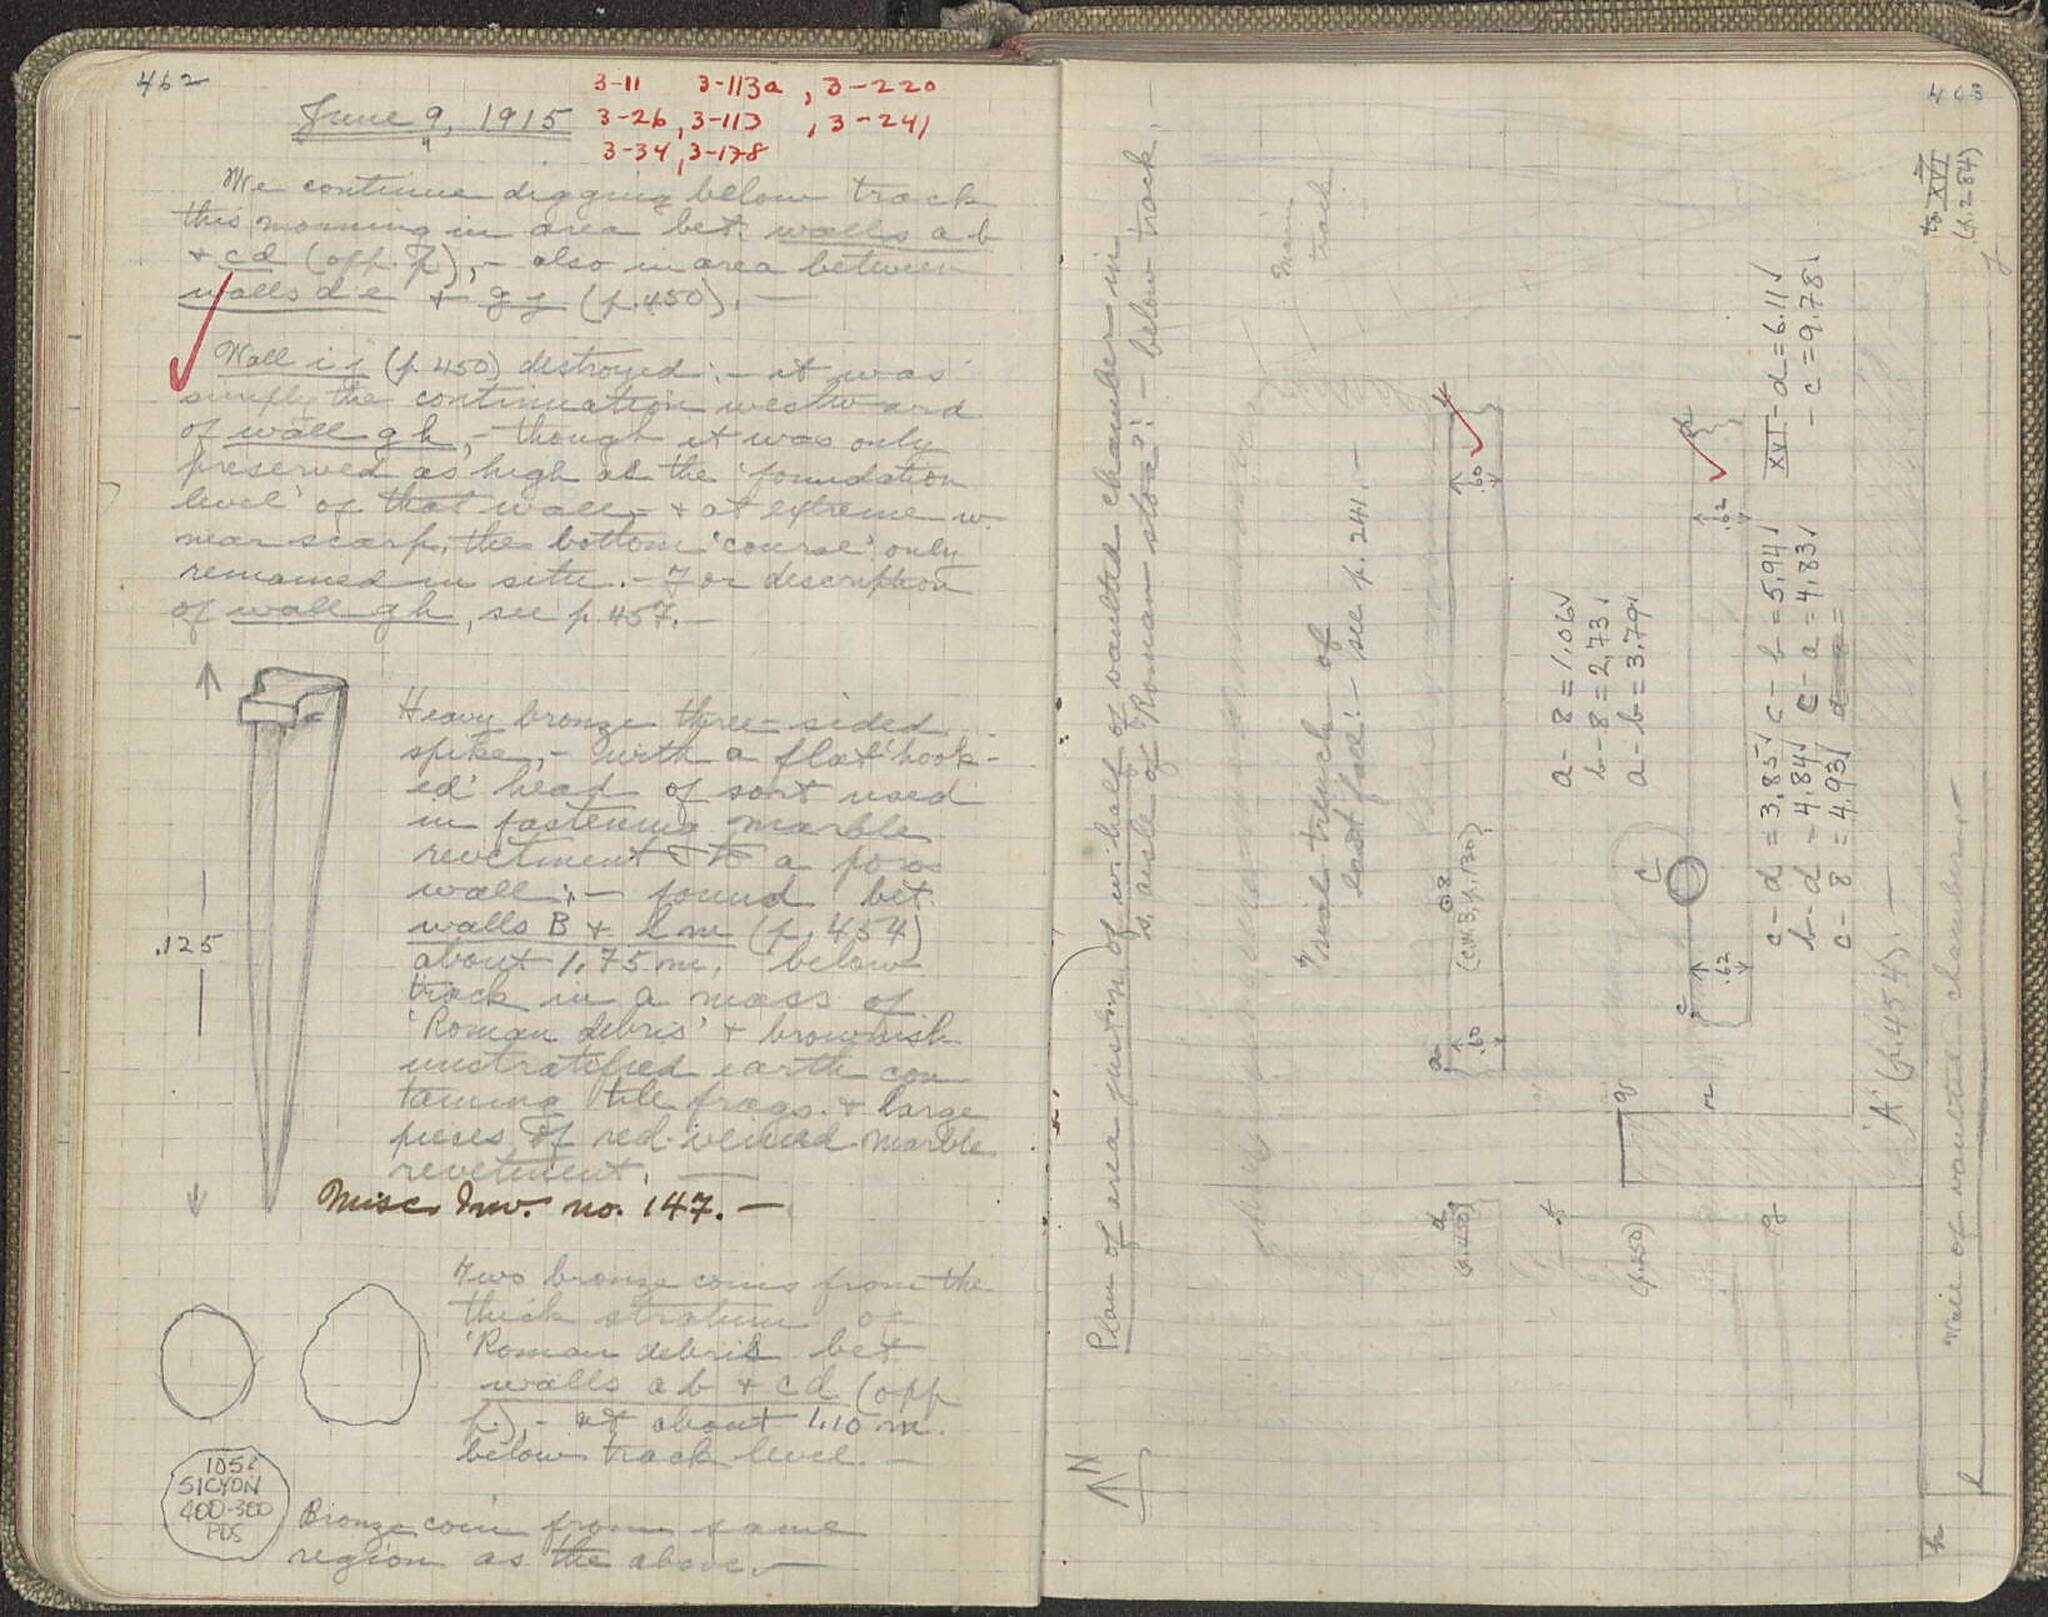 462
June 9, 1915
3-11 3-113a, 3-220
3-26, 3-113, 3-241
3-34, 3-178
We continue digging below track
this morning in area bet. walls a b
+ cd (opp. p.), - also in area between
walls d e + g j (p. 450). -
Wall i j (p. 450) destroyed: - it was
simply the continuation westward
of wall g h, - though it was only
preserved as high as the 'foundation
level' of that wall, - + at extreme w.
near scarp, the bottom 'course' only
remained in situ. - For description
of wall g h, see p. 457. -
.125
Heavy bronze three-sided
spike, - with a flat 'hook-
ed' head of sort used
in fastening marble
revetment to a poros
wall: - found bet.
walls B + l m (p. 454)
about 1.75 m. below
track in a mass of
'Roman debris' + brownish
unstratified earth con
taining tile frags. + large
pieces of red-veined marble
revetment. -
Misc. Inv. no. 147. -
Two bronze coins from the
thick stratum of
'Roman debris' bet
walls a b + c d (opp
p.), - at about 1.10 m.
below track level. -
105
SICYON
400-300
PDS
Bronze coin from same
region as the above. -
463
Plan of area just n. of w. half of vaulted chamber in
s. aisle of 'Roman stoa': - below track. -
N
Main
track
Trial trench of
last fall: - see p. 241. -
a
.60
8
(C.W.B, p. 130)
.60
b
a - 8 = 1.06
b - 8 = 2.73
a - b = 3.79
c
.62
C
.62
d
c - d = 3.85
b - d = 4.84
c - 8 = 4.93
c - b = 5.94
c - a = 4.83
XVI - d = 6.11
- c = 9.78
to XVI
(p. 284)
d
(p. 450)
(p. 250)
g
'A' (p. 454). -
Wall of vaulted chamber. -
h